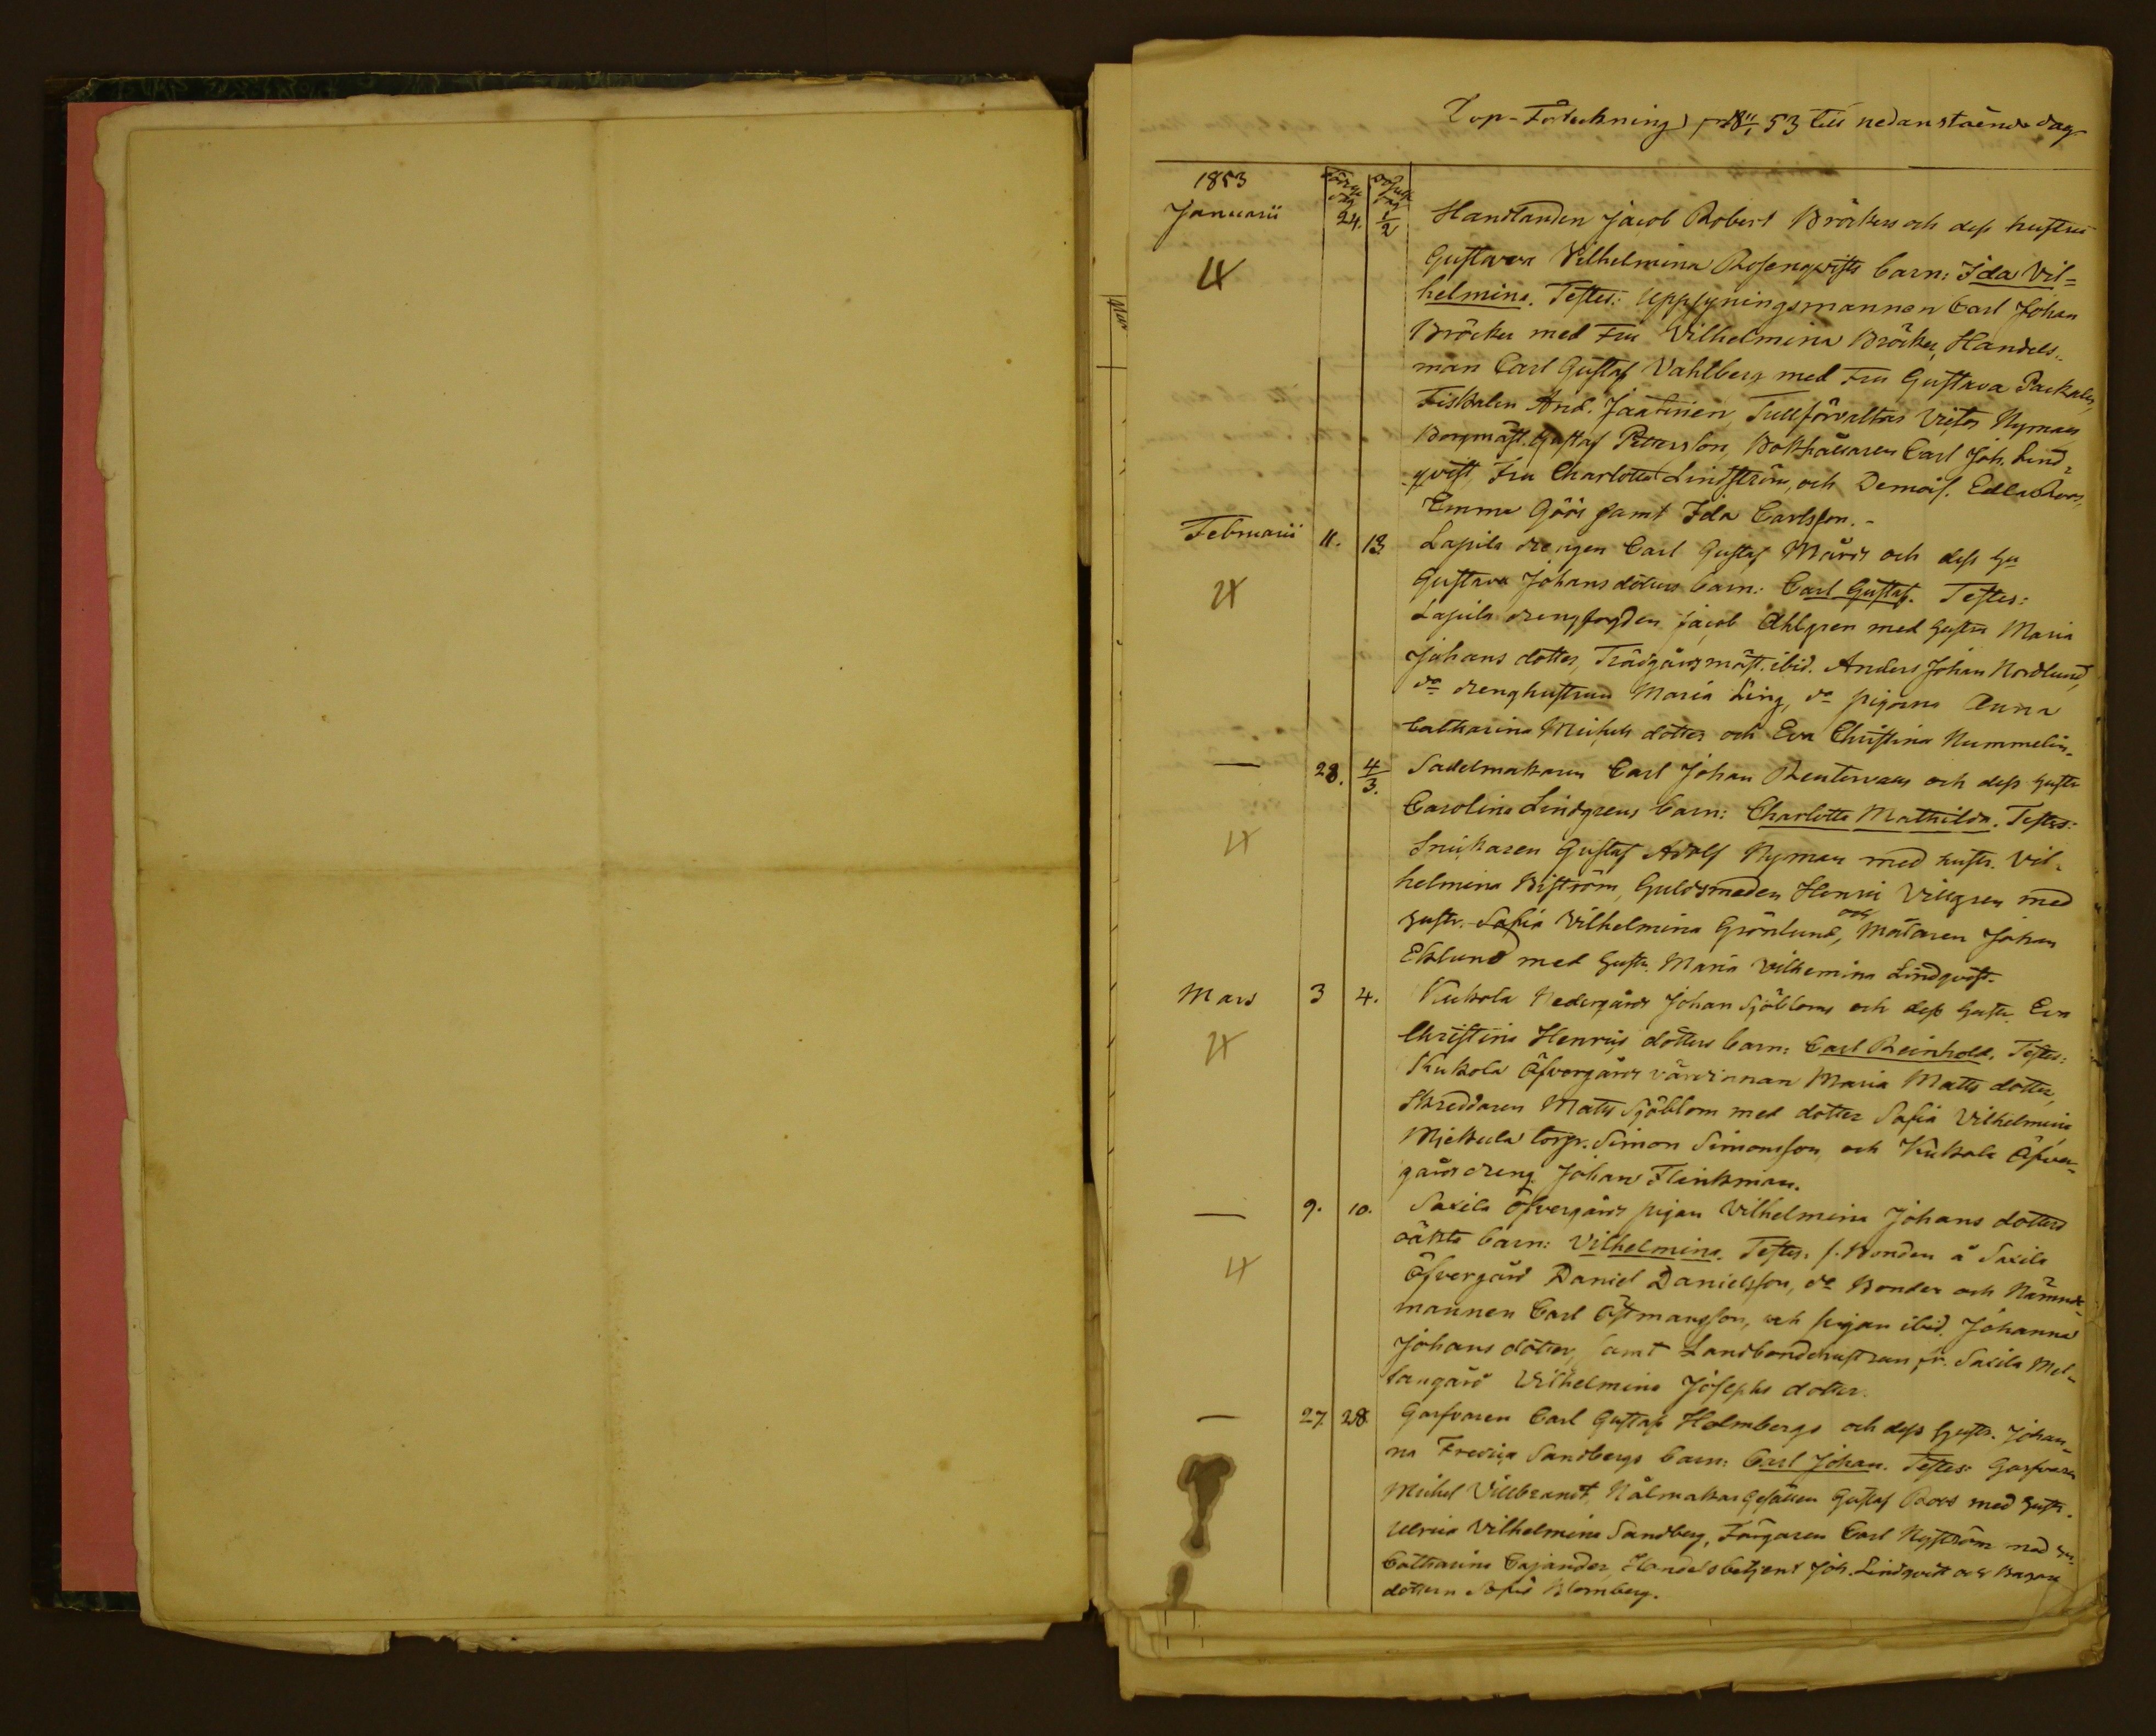 Dop-Förteckning från 18 11/1 53 till nedanstående dag
1853
Födelse dag
Döpelse dag
Januarii 24. 1/2 Handlanden Jacob Robert Bröckers och dess hustrus
Gustava Vilhelmina Rosenqvists barn: Ida Vil=
helmina. Testes: Uppsyningsmannen Carl Johan
Bröcker med Fru Vilhelmina Bröcker, Handels-
man Carl Gustaf Vahlberg med Fru Gustava Packalen,
Fiskalen And. Jaatinen, Tullförvaltar Victor Nyman
Borgmäst. Gustaf Petersson, Bokhållaren Carl Joh. Lind-
qvist, Fru Charlotta Lindström, och Demois. Edla Roos,
Emma Göös samt Ida Carlsson.
Februarii 11. 13 Lapila drengen Carl Gustaf Mårds och dess hu
Gustava Johansdotters barn: Carl Gustaf. Testes:
Lapila drengfogden Jacob Ahlgren med hustru Maria
Johans dotter, Trädgårdsmäst. ibid. Anders Johan Nordlund,
do drenghustrun Maria Ling, do pigorna Anna
Catharina Michels dotter och Eva Christina Nummelin.
— 28. 4/3. Sadelmakaren Carl Johan Reutervaas och dess hustr
Carolina Lindgrens barn: Charlotta Mathilda. Testes:
Snickaren Gustaf Adolf Nyman med hustr. Vil-
helmina Biström, Guldsmeden Henric Villgren med
hustr. Safia Vilhelmina Grönlund, och Målaren Johan
Eklund med hustr. Maria Vilhemina Lindqvist.
Mars 3 4. Kukola Nedergårds Johan Sjöbloms och dess hustr. Eva
Christina Henrics dotters barn: Carl Reinhold. Testes:
Kukola Öfvergårds värdinnan Maria Matts dotter,
Skreddaren Matts Sjöblom med dotter Safia Vilhelmina
torp. Simon Simonsson, och Kukola Öfver-
gårds dreng Johan Flinkman.
— 9. 10. Saxila Öfvergårds pigan Vilhelmina Johans dotters
oäkta barn: Vilhelmina. Testes: f. Bonden å Saxila
Öfvergård Daniel Danielsson, do Bonden och Nämnde-
mannen Carl Östmansson, och pigan ibid. Johanna
Johans dotter, samt Landbondehustrun fr. Saxila Mel-
langård Vilhelmina Josephs dotter.
— 27. 28 Garfvaren Carl Gustaf Holmbergs och dess hustr. Johan-
na Fredrica Sandbergs barn: Carl Johan. Testes: Garfvaren
Michel Villebrandt, Nålmakar gesällen Gustaf Roos med hustr.
Ulrica Vilhelmina Sandberg, Färgaren Carl Nyström med hu.
Catharina Cajander, Handelsbetjent Joh. Lindqvist och
dottern Sofia Blomberg.